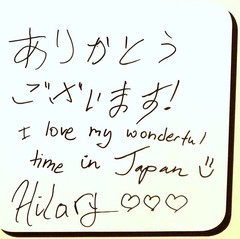 ありがとう
ございます!
I love my wonderful
time in Japan
Hilary